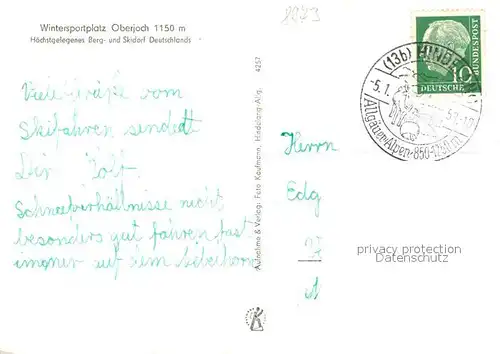 1843
Wintersportplatz Oberjoch 1150 m
Höchstgelegenes Berg- und Skidorf Deutschlands
4257
Viele Grüße vom
Skifahren sendet
Dein
Schneeverhältnisse nicht
besonders gut fahren fast
immer auf dem Iseler
Aufnahme & Verlag: Foto Kaufmann, Hindelang-Allg.
DEUTSCHE
BUNDESPOST
10
(13b) HINDELANG
-5.1.
Allgäuer-Alpen·850-1250m
Herrn
Edg
privacy protection
Datenschutz